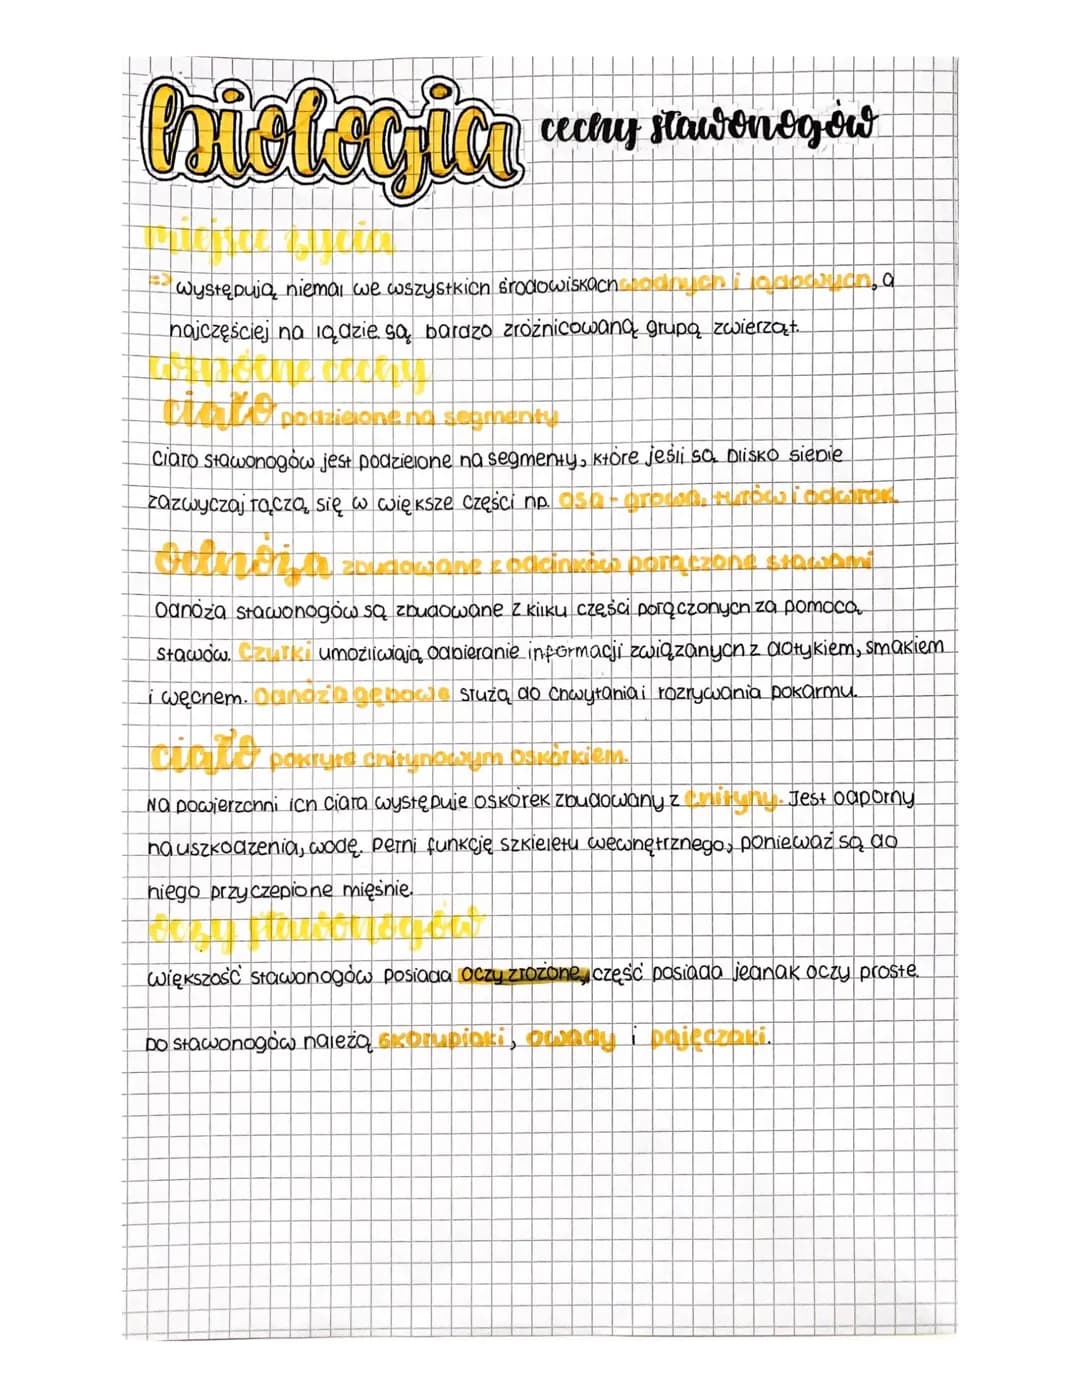 biologia cechy stawonogów
miejsce życia
=> występują niemal we wszystkich środowiskach wodnych i lądowych, a
najczęściej na lądzie. są bardzo zróżnicowaną grupą zwierząt.
wspólne cechy
ciało podzielone na segmenty
Ciało stawonogów jest podzielone na segmenty, które jeśli są blisko siebie
zazwyczaj łączą się w większe części np. osa - głowa, tułów i odwłok.
Odnóża zbudowane z odcinków połączone stawami
Odnóża stawonogów są zbudowane z kilku części połączonych za pomocą
stawów. Czułki umożliwiają odbieranie informacji związanych z dotykiem, smakiem
i węchem. Odnóża gębowe służą do chwytania i rozrywania pokarmu.
ciało pokryte chitynowym oskórkiem.
Na powierzchni ich ciała występuje oskórek zbudowany z chityny. Jest odporny
na uszkodzenia, wodę. Pełni funkcję szkieletu wewnętrznego, ponieważ są do
niego przyczepione mięśnie.
oczy stawonogów
większość stawonogów posiada oczy złożone, część posiada jednak oczy proste.
Do stawonogów należą skorupiaki, owady i pajęczaki.